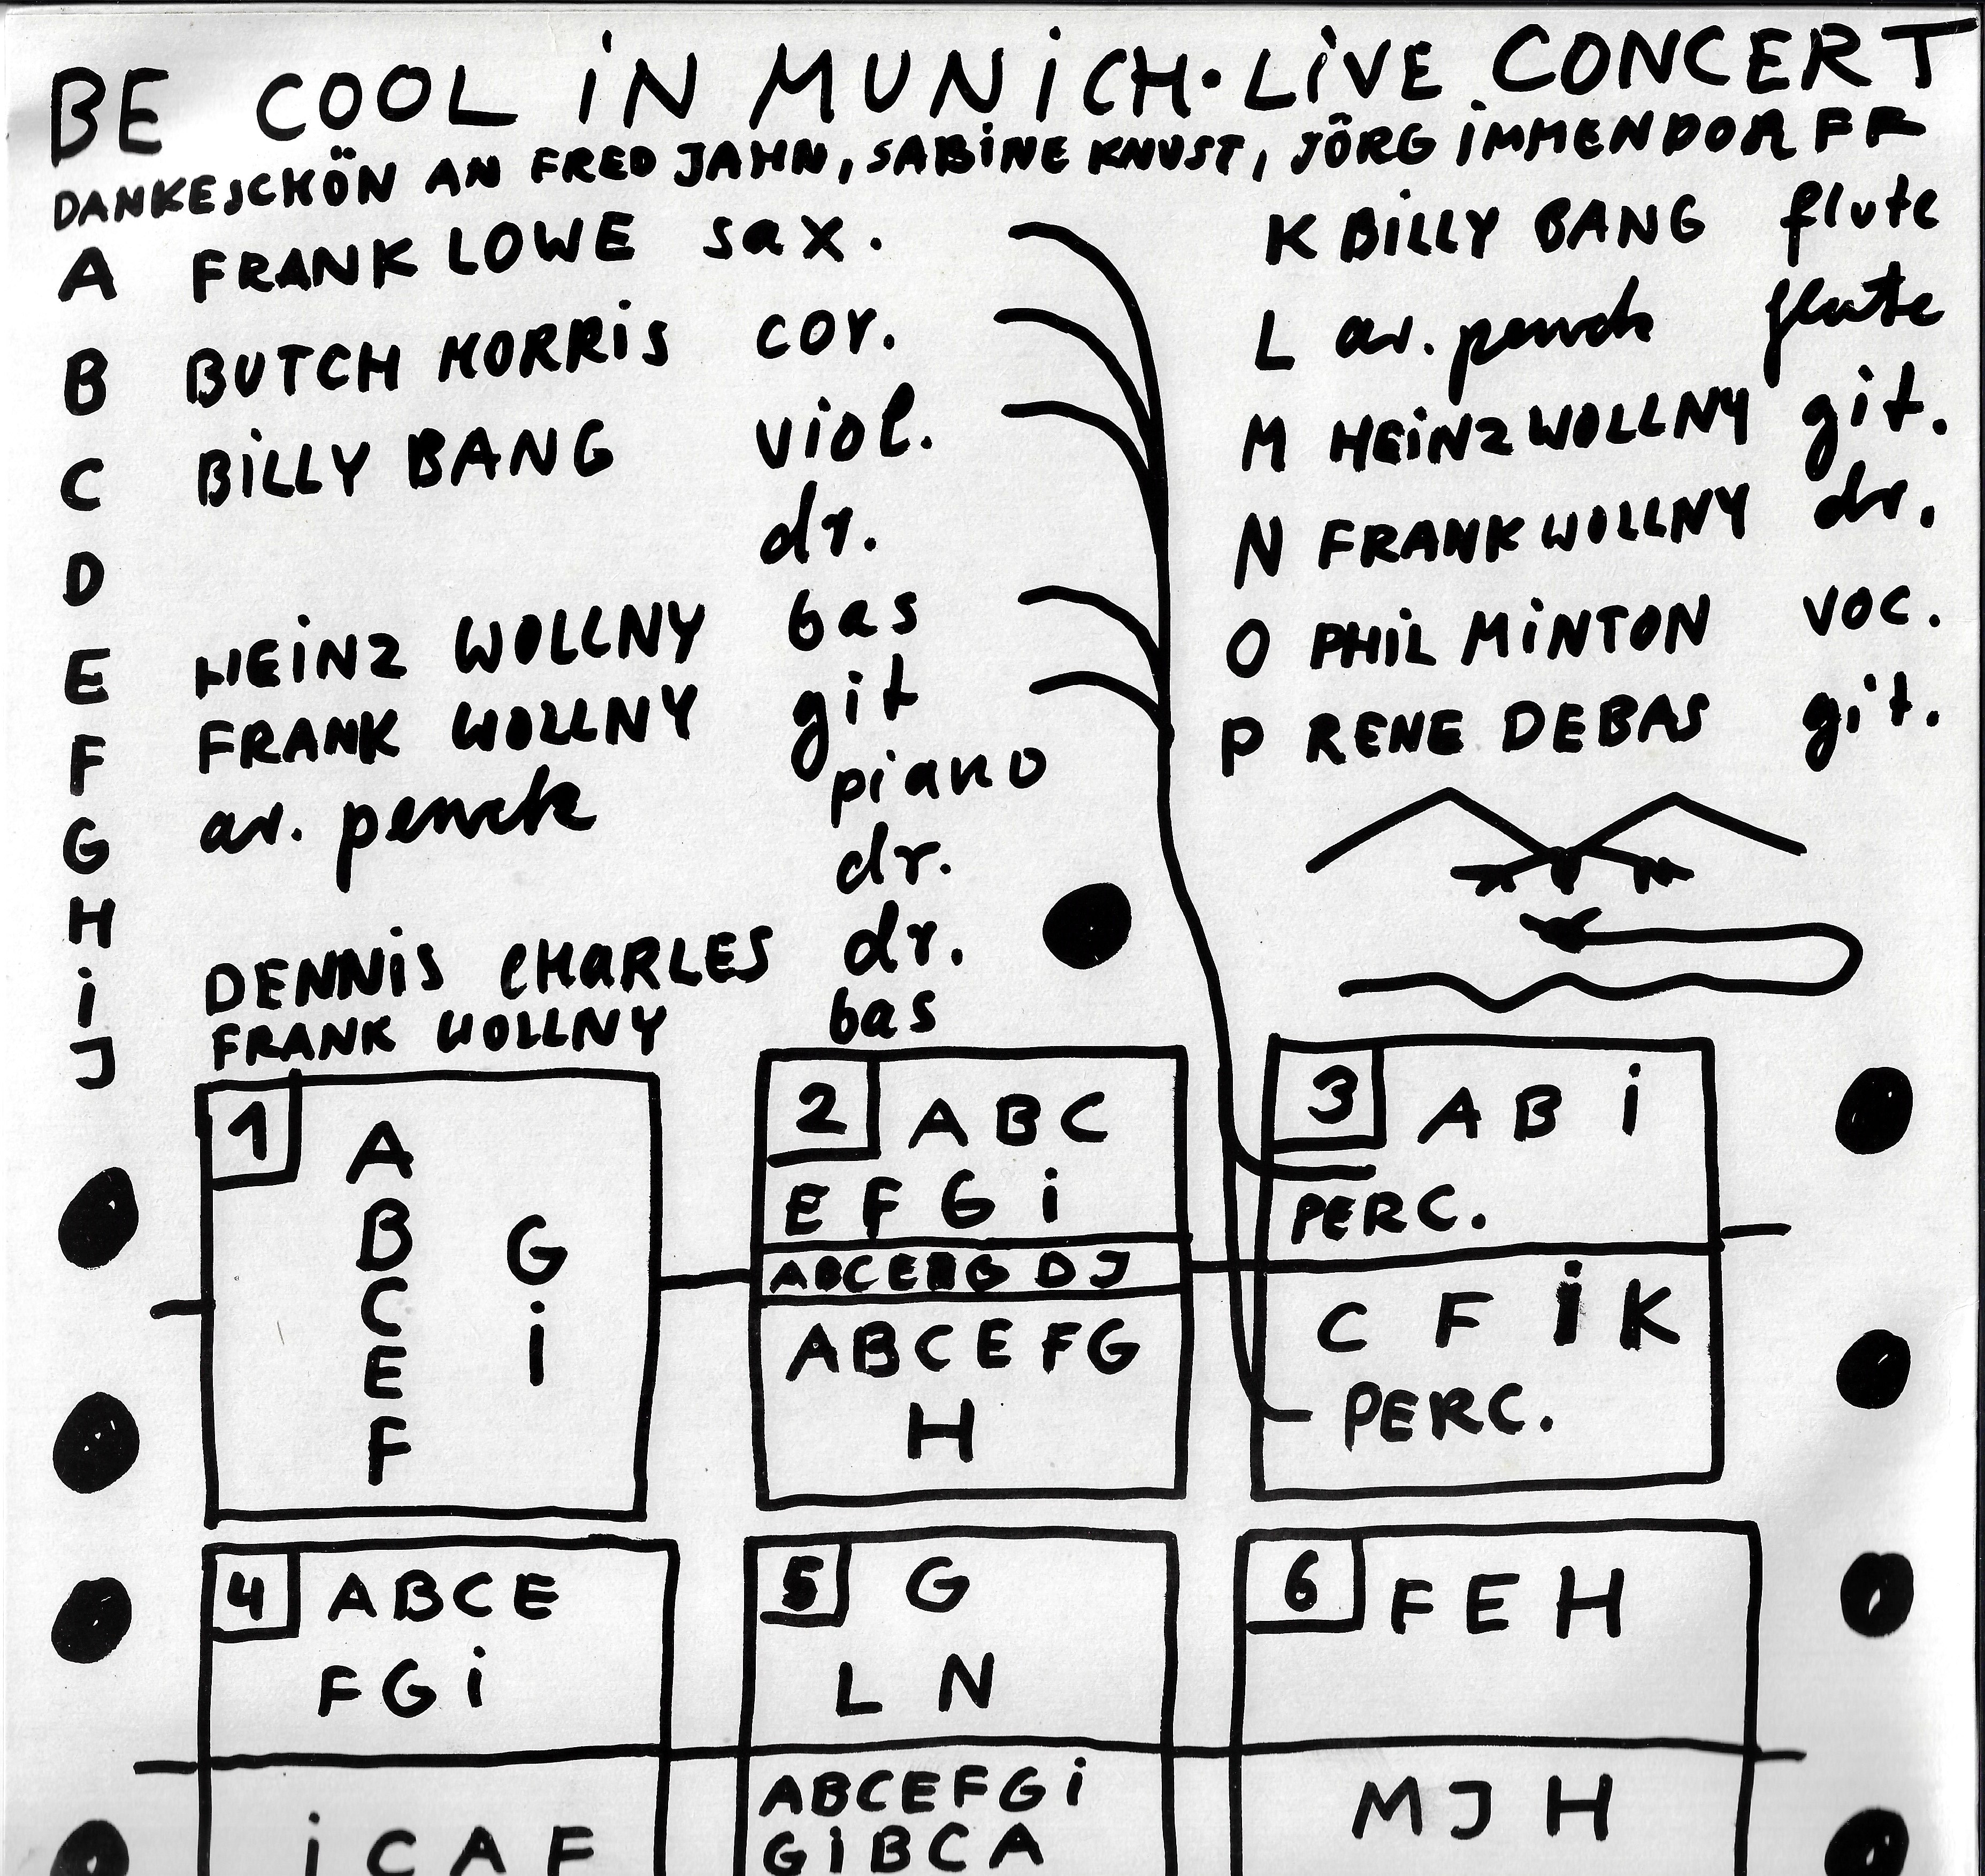 BE COOL iN MUNiCH·LiVE CONCERT
DANKESCHÖN AN FRED JAHN, SABiNE KNUST, JÖRG iMMENDORFF
A FRANK LOWE sax.
B BUTCH MORRiS cor.
C BiLLY BANG viol.
D dr.
E HEiNZ WOLLNY bas
F FRANK WOLLNY git
G ar. penck piano
H dr.
i DENNiS CHARLES dr.
J FRANK WOLLNY bas
K BiLLY BANG flute
L ar. penck flute
M HEiNZ WOLLNY git.
N FRANK WOLLNY dr.
O PHiL MiNTON voc.
P RENE DEBAS git.
1
A
B
C
E
F
G
i
2 ABC
EFGi
DJ
ABCEFG
H
3 ABi
PERC.
C F i K
PERC.
4 ABCE
FGi
iCAF
5 G
L N
ABCEFGi
GiBCA
6 FEH
MJH